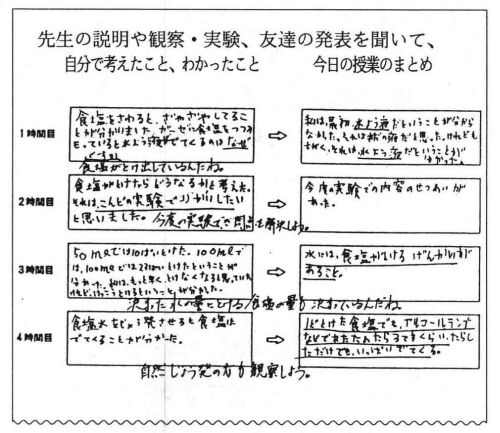 先生の説明や観察・実験、友達の発表を聞いて、
自分で考えたこと、わかったこと
今日の授業のまとめ
1時間目
食塩をさわると、ざやざやしてるこ
とが分かりました。ガーゼに食塩をつつみ
もっていると水よう液がでてくるのは「なぜ
ですか
食塩がとけ出しているんだね。
⇨
私は、最初、水よう液だということが分から
なかった。それは
の液だと思った。けれども
ちがく、それは、水よう液だということが
分かった。
2時間目
食塩がとけたらどうなるかを考えた。
それは、こんどの実験で
したい
と思いました。今度の実験で
問点を解決しよう。
⇨
今度の実験での内容のせつめいが
あった。
3時間目
50mlでは10ぱいとけた。100ml
では、
とけたということが
分かった。私は、もっと早く、とけなくなると思っていた
けれど、けっこうとけるということが分かった。
決まった水の量にとける食塩の量も決まっているんだね
⇨
水には、食塩がとける げんかいが
あること。
4時間目
食塩水をじょう発させると食塩は
でてくることが分かった。
自然じょう発の方も観察しよう。
⇨
1どとけた食塩でも、アルコールランプ
などで
たらすくらい、たらし
ただけでも、いっぱいでてくる。